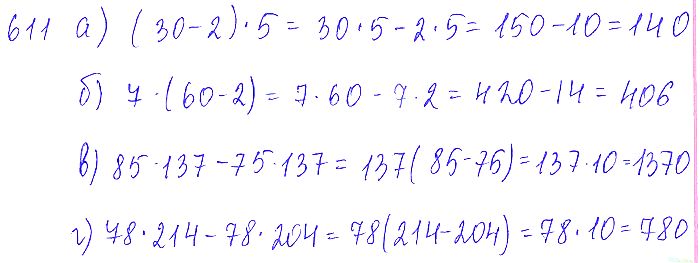 611 а) (30-2)·5 = 30·5-2·5 = 150-10 = 140
б) 7·(60-2) = 7·60-7·2 = 420-14 = 406
в) 85·137-75·137 = 137(85-75) = 137·10 = 1370
г) 78·214-78·204 = 78(214-204) = 78·10 = 780